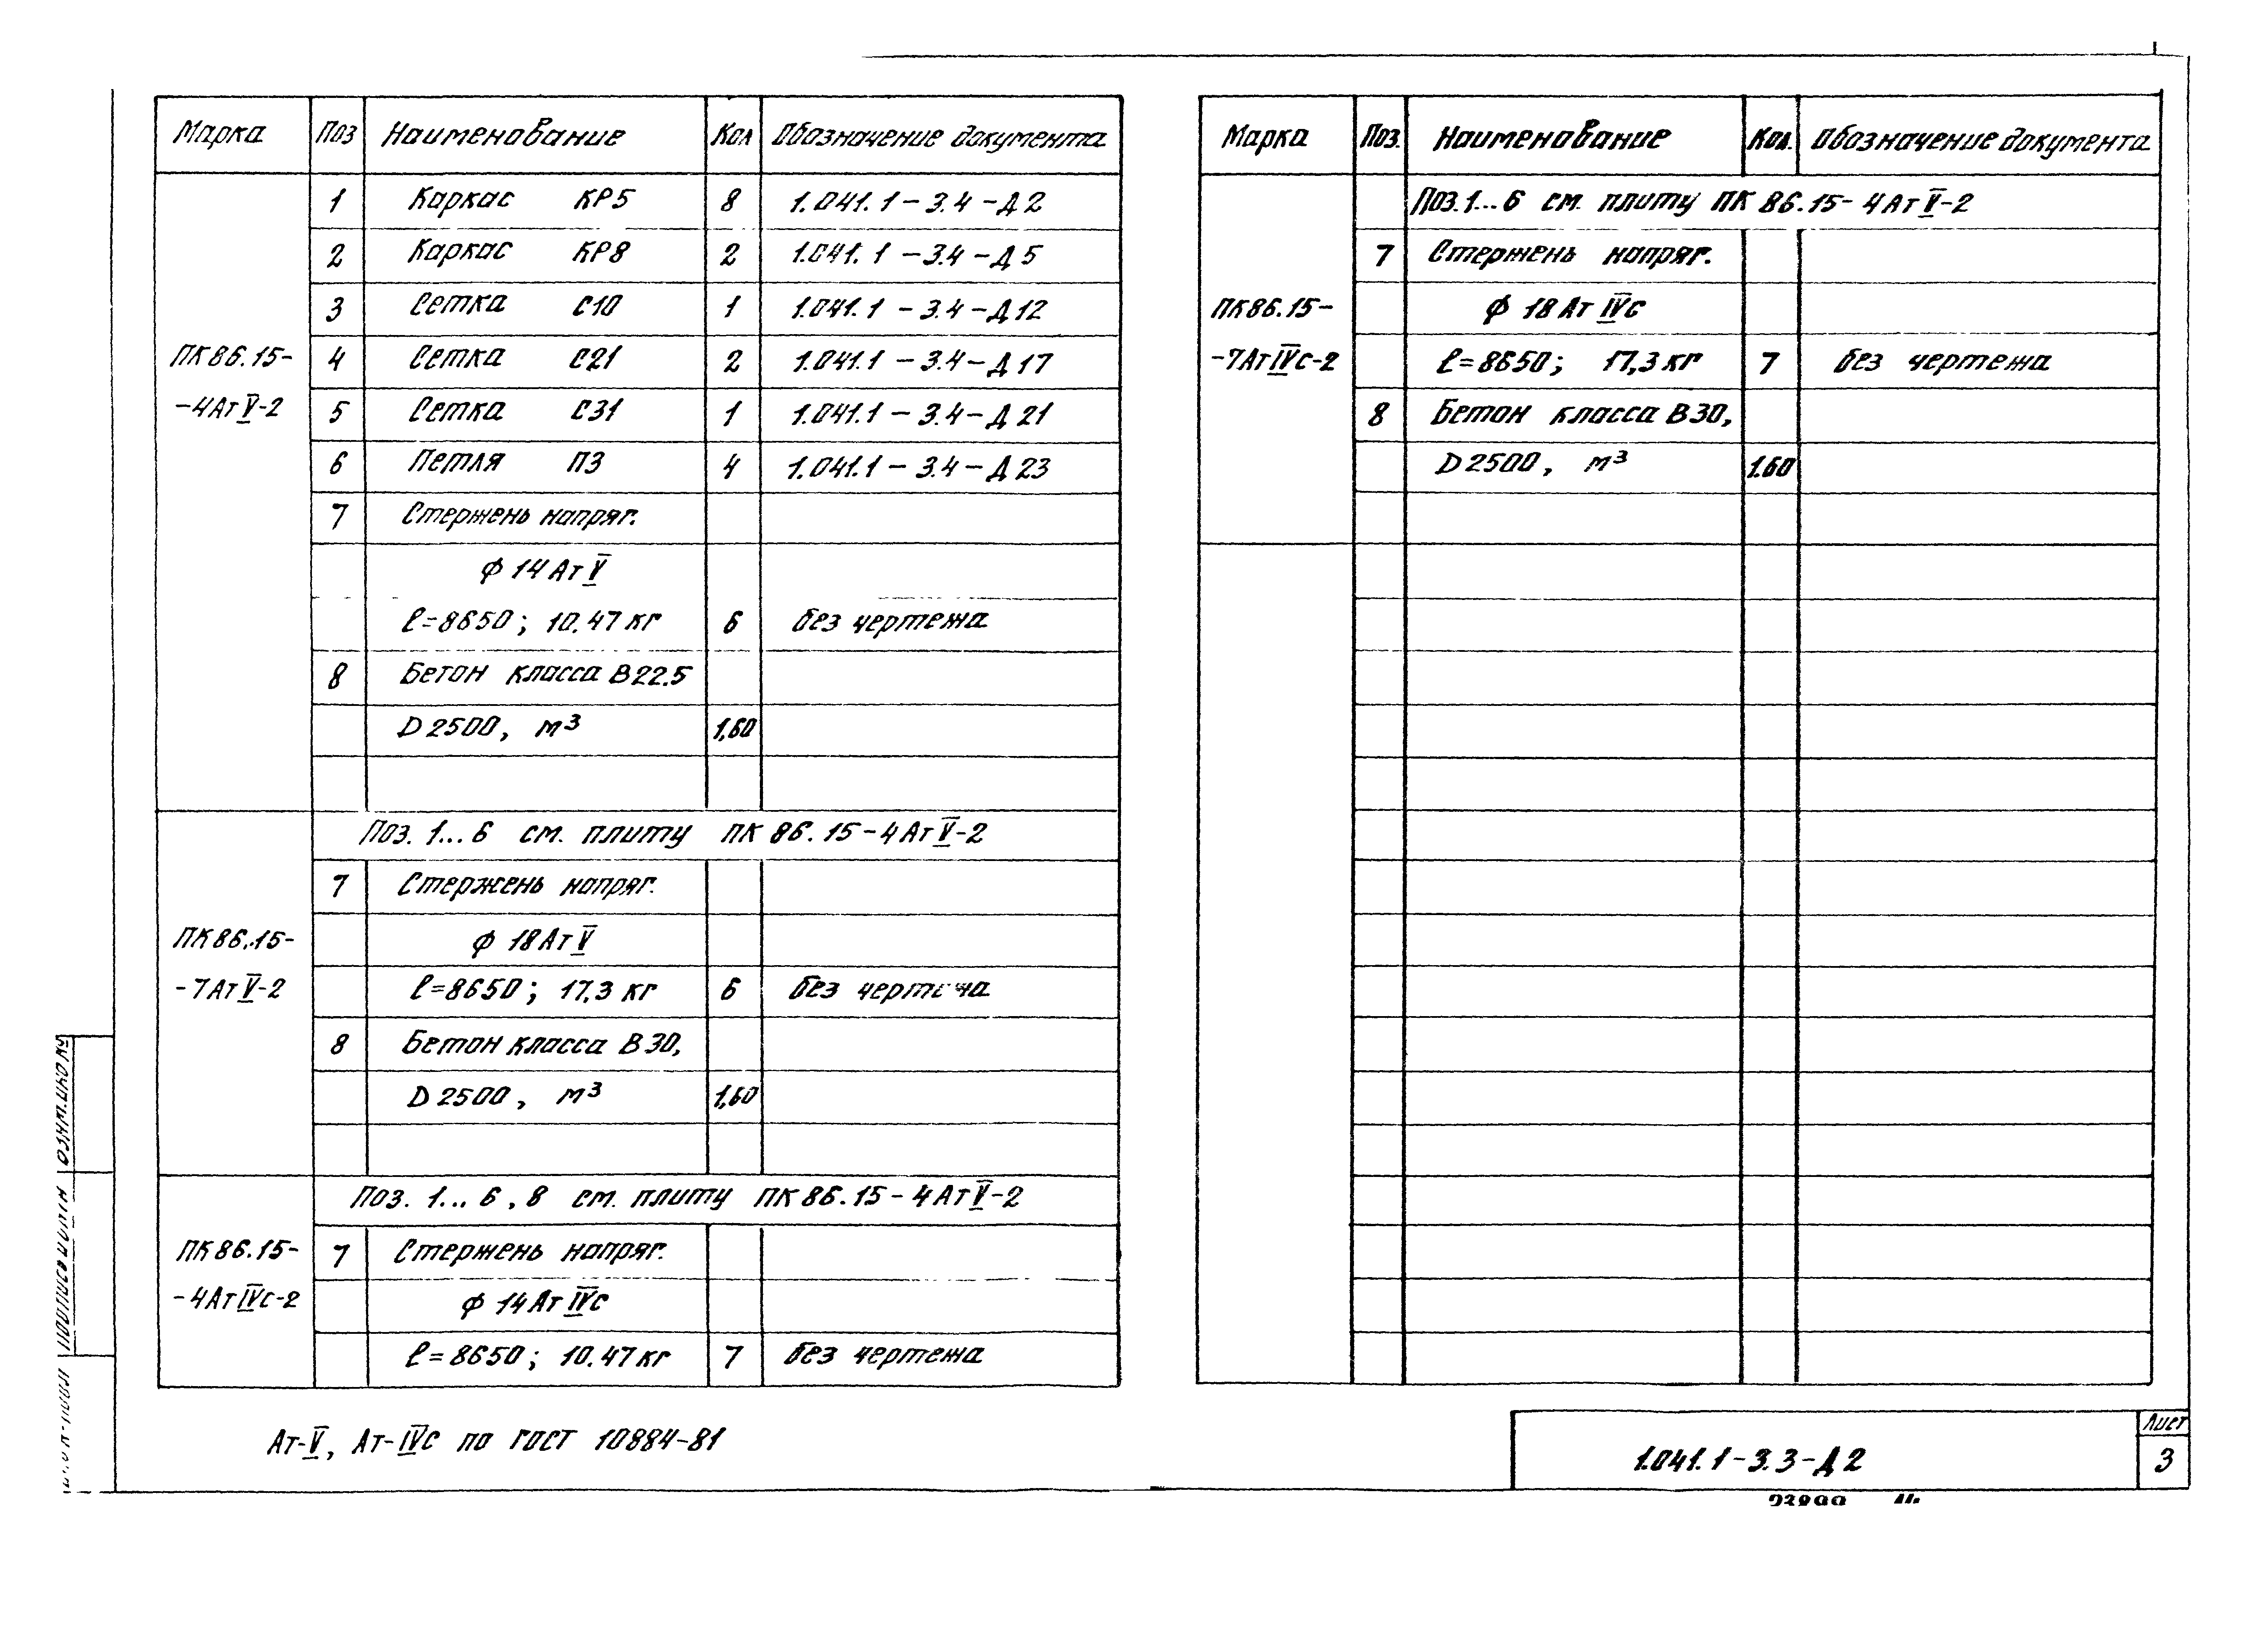 Марка Поз Наименование Кол Обозначение документа
1 Каркас КР5 8 1.041.1-3.4-Д2
2 Каркас КР8 2 1.041.1-3.4-Д5
3 Сетка С10 1 1.041.1-3.4-Д12
ПК86.15- 4 Сетка С21 2 1.041.1-3.4-Д17
-4АтV-2 5 Сетка С31 1 1.041.1-3.4-Д21
6 Петля П3 4 1.041.1-3.4-Д23
7 Стержень напряг.
ф 14АтV
ℓ=8650; 10.47кг 6 без чертежа
8 Бетон класса В22.5
D2500, м³ 1,60
Поз. 1...6 см. плиту ПК 86.15-4АтV-2
7 Стержень напряг.
ПК86.15- ф 18АтV
-7АтV-2 ℓ=8650; 17,3 кг 6 без
8 Бетон класса В30,
D2500, м³ 1,60
Поз. 1...6,8 см. плиту ПК86.15-4АтV-2
ПК86.15- 7 Стержень напряг.
-4АтIVС-2 ф 14АтIVС
ℓ=8650; 10.47кг 7 без чертежа
Марка Поз. Наименование Кол. Обозначение документа
Поз.1...6 см. плиту ПК 86.15-4АтV-2
7 Стержень напряг.
ПК86.15- ф 18АтIVС
-7АтIVС-2 ℓ=8650; 17,3кг 7 без чертежа
8 Бетон класса В30,
D2500, м³ 1.60
Ат-V, Ат-IVС по ГОСТ 10884-81
1.041.1-3.3-Д2
Лист
3